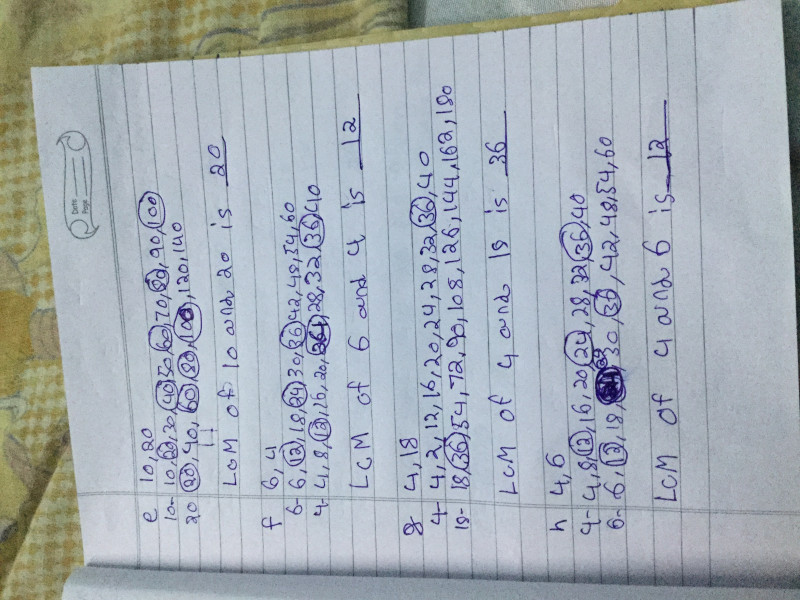 Date
Page
e 10,20
10- 10,20,30,40,50,60,70,80,90,100
20 20,40,60,80,100,120,140
LCM of 10 and 20 is 20
f 6,4
6- 6,12,18,24,30,36,42,48,54,60
4- 4,8,12,16,20,24,28,32,36,40
LCM of 6 and 4 is 12
g 4,18
4- 4,2,12,16,20,24,28,32,36,40
18- 18,36,54,72,90,108,126,144,162,180
LCM of 4 and 18 is 36
h 4,6
4- 4,8,12,16,20,24,28,32,36,40
6- 6,12,18,24,30,36,42,48,54,60
LCM of 4 and 6 is 12